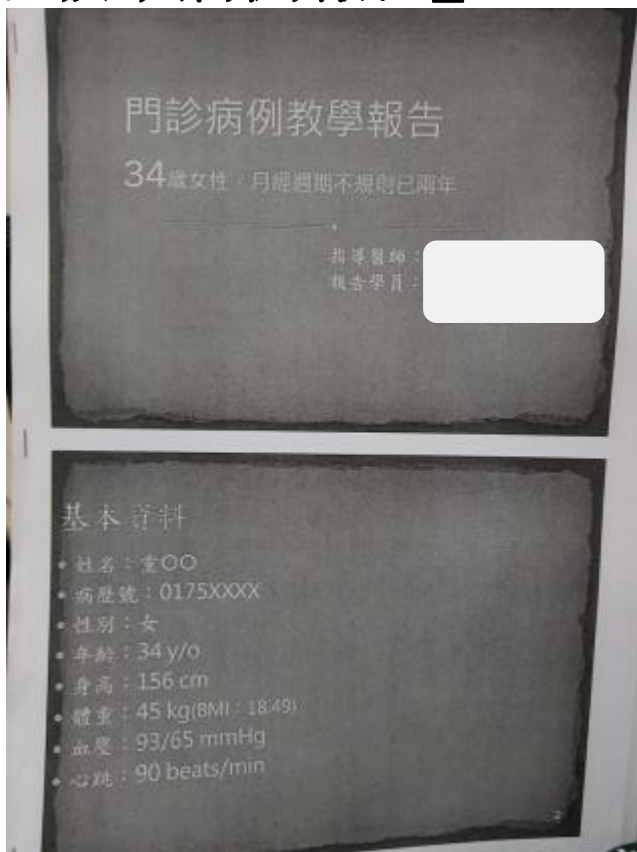 門診病例教學報告
34歲女性，月經週期不規則已兩年
指導醫師：
報告學員：
基本資料
• 姓名：童OO
• 病歷號：0175XXXX
• 性別：女
• 年齡：34 y/o
• 身高：156 cm
• 體重：45 kg(BMI：18.49)
• 血壓：93/65 mmHg
• 心跳：90 beats/min
2